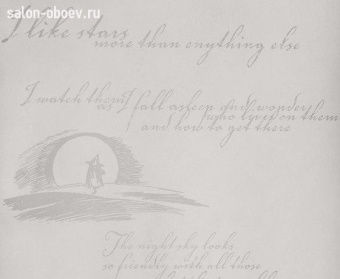 salon-oboev.ru
I like stars
more than anything else
I watch them
as I fall asleep and wonder
who lives on them
and how to get there
The night sky looks
so friendly with all those